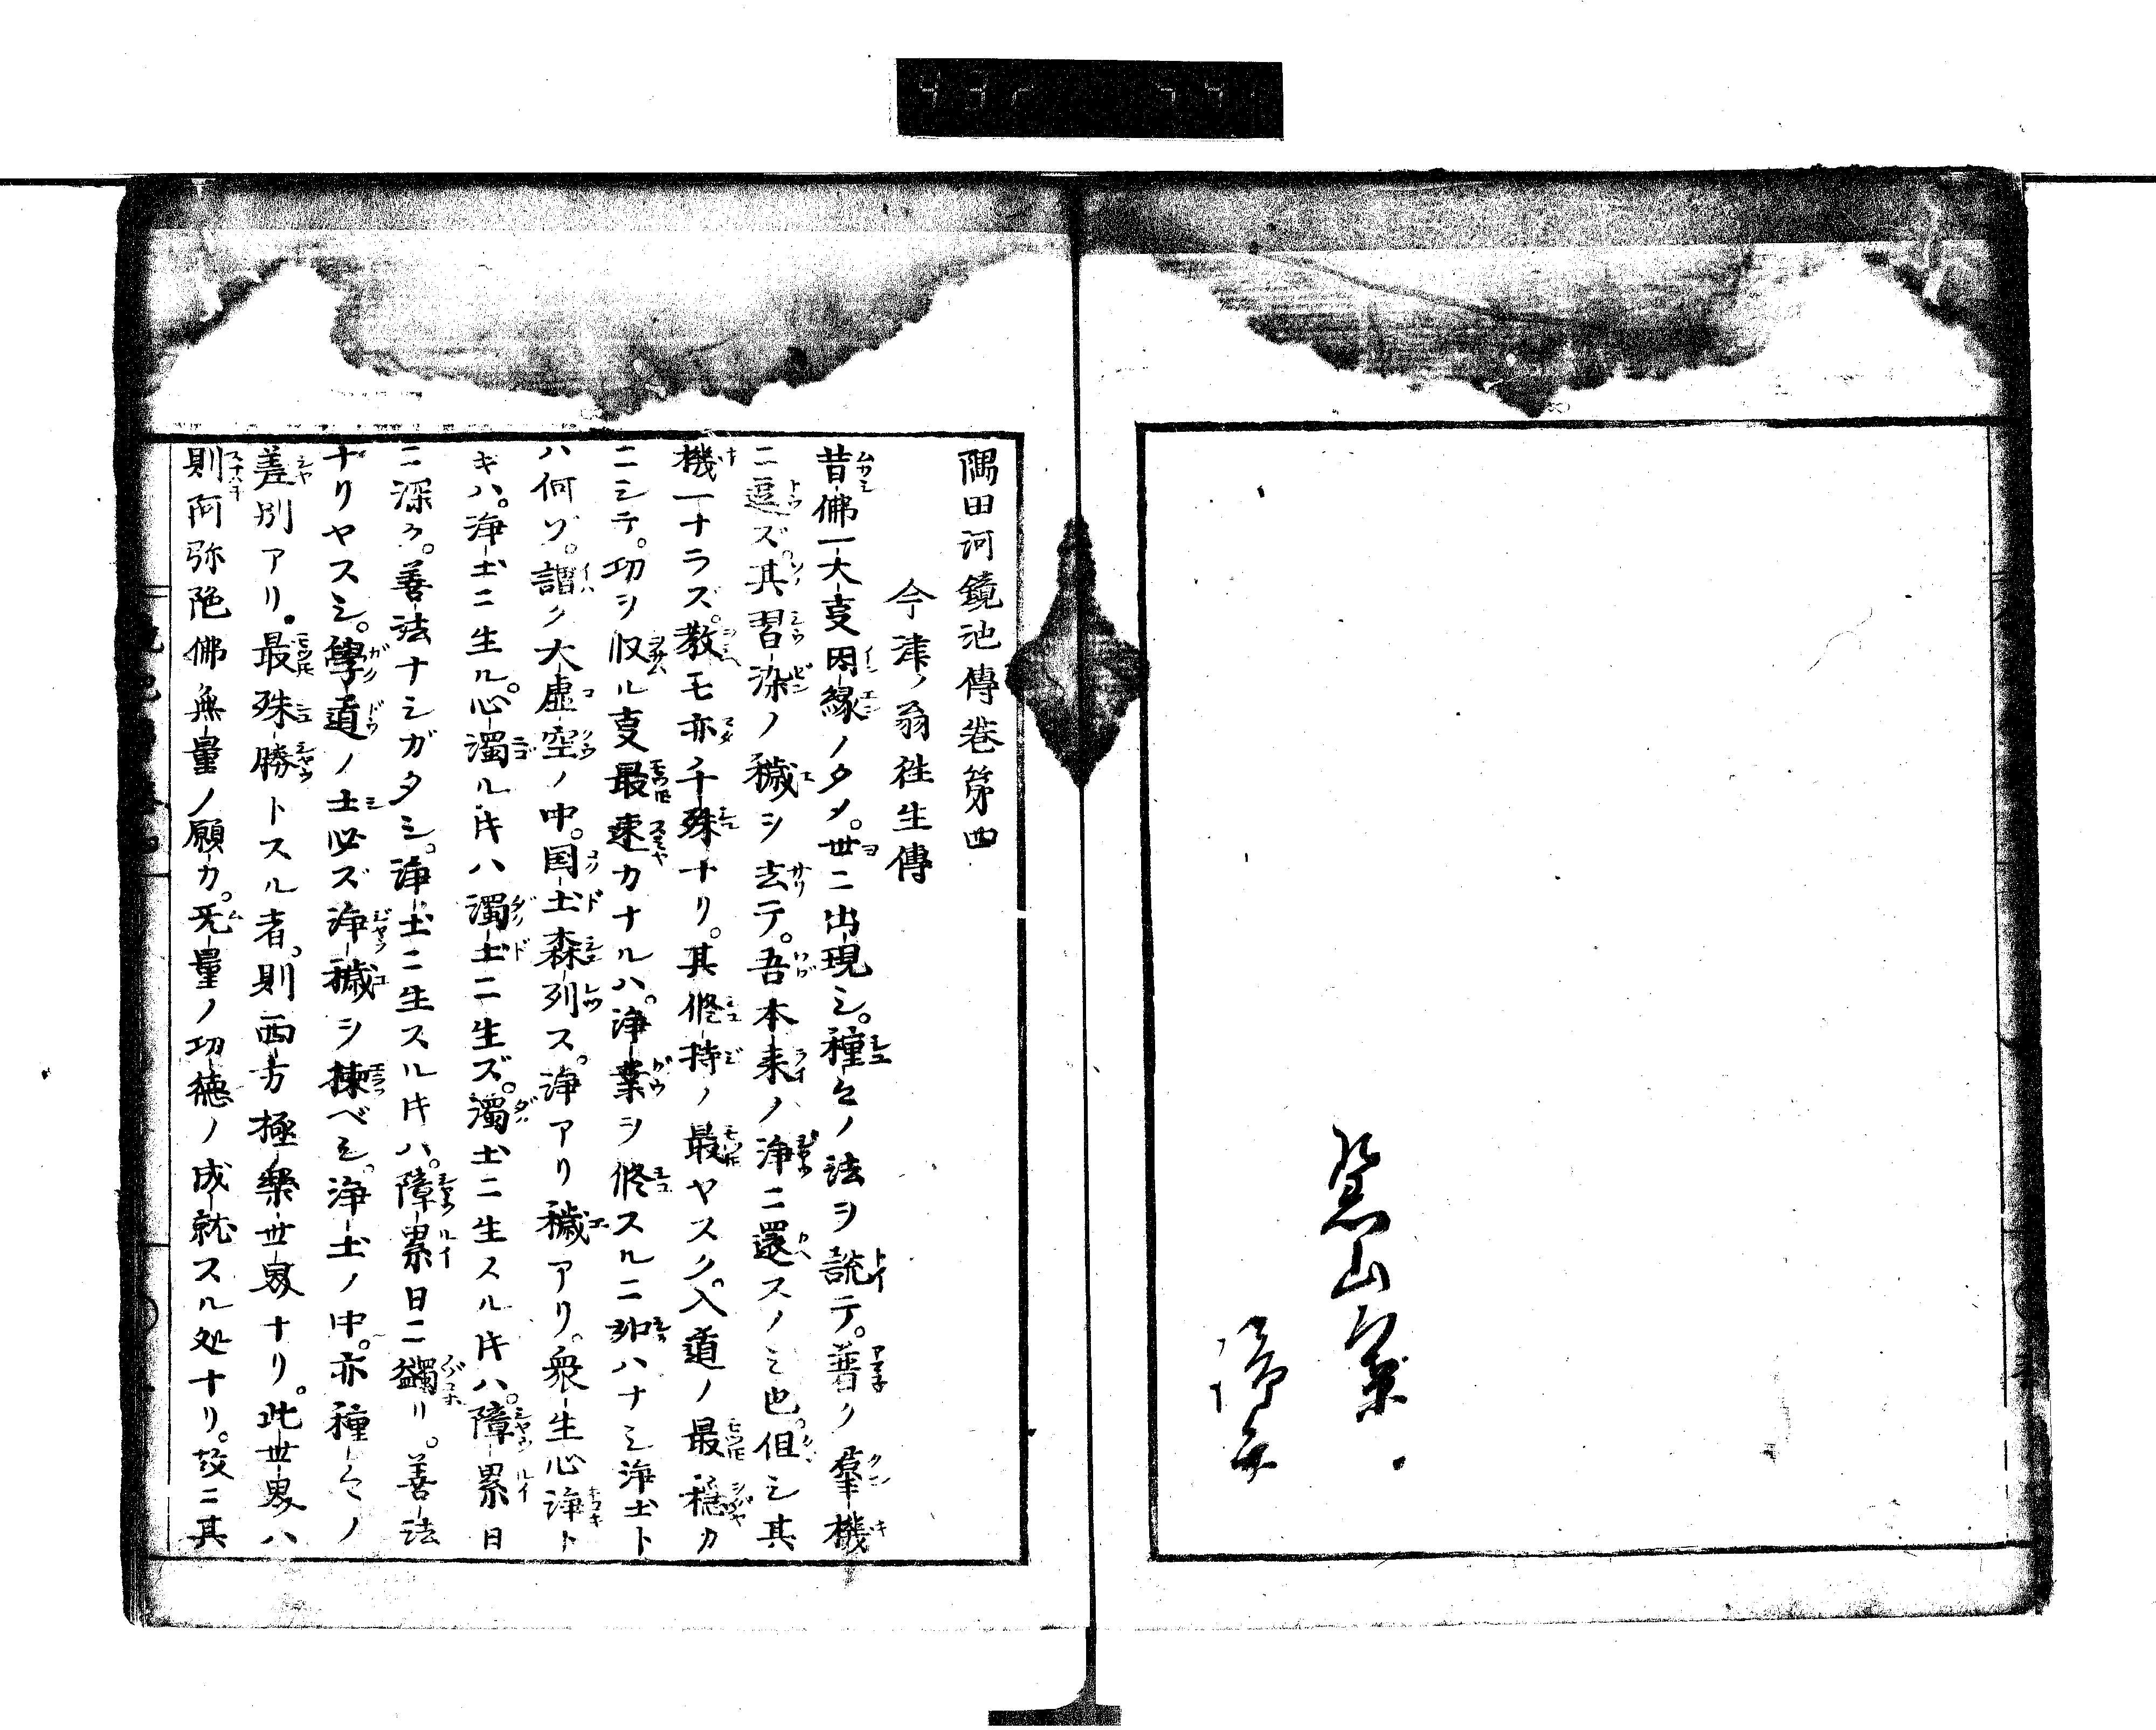 隅田河鏡池傳巻第四
今津ノ翁往生傳
昔佛一大叓因縁ノタメ。世ニ出現シ。種々ノ法ヲ説テ。普ク羣機
ニ逗ズ。其習染ノ穢ヲ去テ。吾本来ノ浄ニ還スノミ也。但シ其
機一ナラズ。教モ亦千殊ナリ。其修持ノ最ヤスク。入道ノ最穏カ
ニシテ。功ヲ収ル叓最速カナルハ。浄業ヲ修スルニ如ハナシ浄土ト
ハ何ゾ。謂ク大虚空ノ中。国土森列ス。浄アリ穢アリ。衆生心浄ト
キハ。浄土ニ生ル。心濁ル𪜈ハ濁土ニ生ズ。濁土ニ生スル𪜈ハ。障累日
ニ深ク。善法ナシガタシ。浄土ニ生スル𪜈ハ。障累日ニ蠲リ。善法
ナリヤスシ。學道ノ士必ズ浄穢ヲ揀ベシ。浄土ノ中。亦種々ノ
差別アリ。最殊勝トスル者。則西方極樂世界ナリ。此世界ハ
則阿弥陀佛無量ノ願力。无量ノ功徳ノ成就スル処ナリ。故ニ其